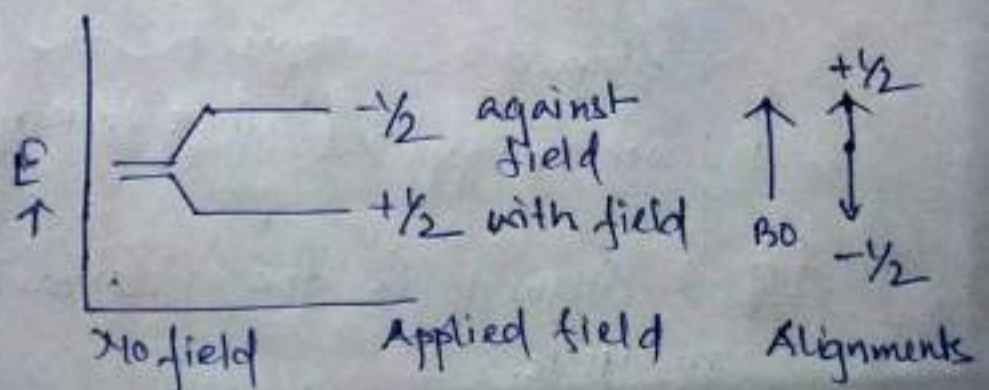 +½
-½ against
field
E
↑
+½ with field
BO
-½
No field Applied field Alignments